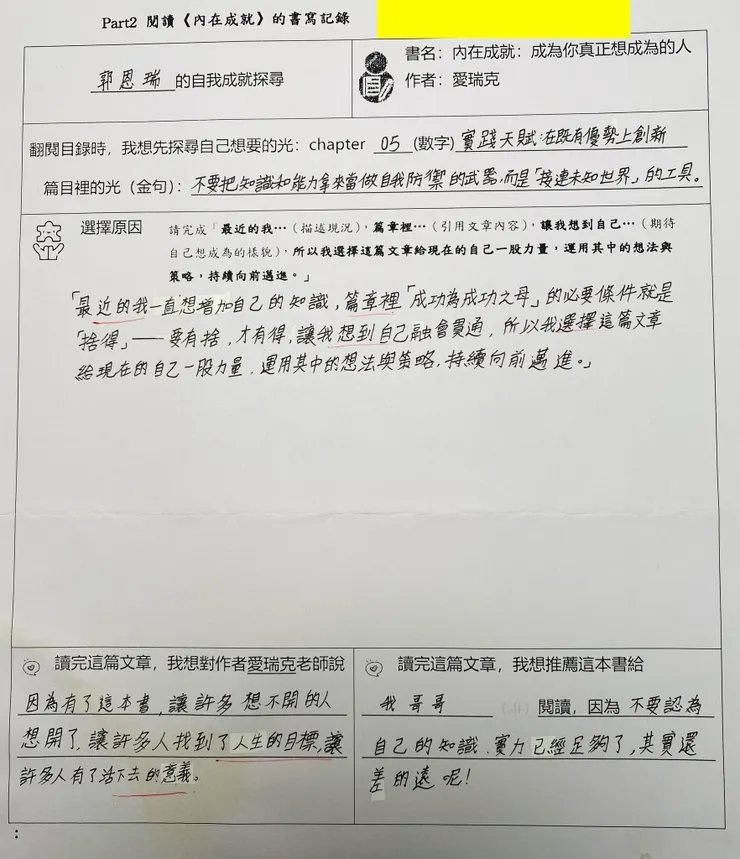 Part2 閱讀《內在成就》的書寫記錄
郭恩瑞 的自我成就探尋
書名：內在成就：成為你真正想成為的人
作者：愛瑞克
翻閱目錄時，我想先探尋自己想要的光：chapter 05 (數字) 實踐天賦：在既有優勢上創新
篇目裡的光（金句）：不要把知識和能力拿來當做自我防禦的武器，而是「接連未知世界」的工具。
選擇原因
請完成「最近的我…（描述現況），篇章裡…（引用文章內容），讓我想到自己…（期待
自己想成為的樣貌），所以我選擇這篇文章給現在的自己一股力量，運用其中的想法與
策略，持續向前邁進。」
「最近的我一直想增加自己的知識，篇章裡「成功為成功之母」的必要條件就是
「捨得」——要有捨，才有得，讓我想到自己融會貫通，所以我選擇這篇文章
給現在的自己一股力量，運用其中的想法與策略，持續向前邁進。」
讀完這篇文章，我想對作者愛瑞克老師說
因為有了這本書，讓許多想不開的人
想開了，讓許多人找到了人生的目標，讓
許多人有了活下去的意義。
讀完這篇文章，我想推薦這本書給
我哥哥 閱讀，因為 不要認為
自己的知識、實力已經足夠了，其實還
差的遠呢！
：